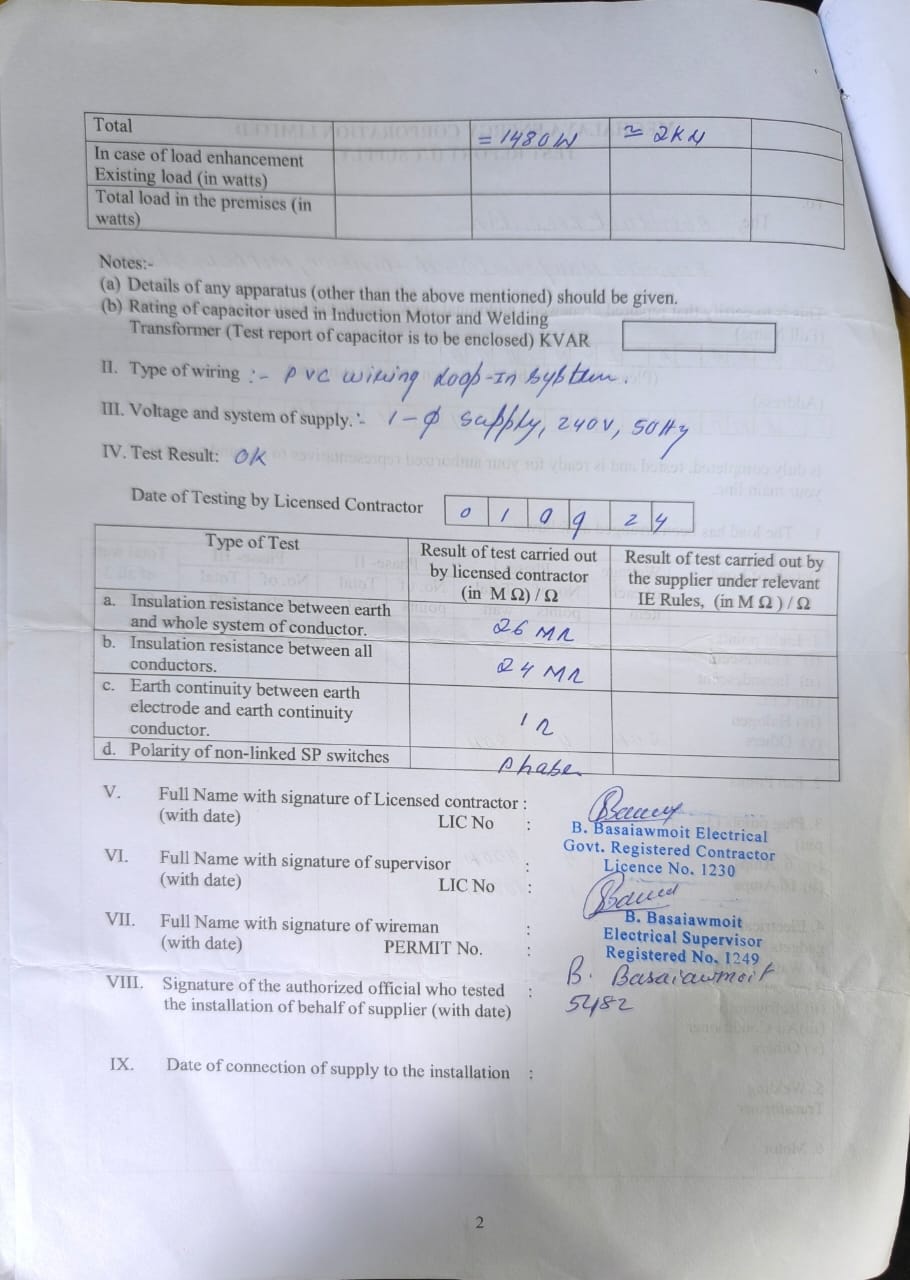 Total = 1480W ≃ 2KW
In case of load enhancement
Existing load (in watts)
Total load in the premises (in
watts)
Notes:-
(a) Details of any apparatus (other than the above mentioned) should be given.
(b) Rating of capacitor used in Induction Motor and Welding
Transformer (Test report of capacitor is to be enclosed) KVAR
II. Type of wiring :- PVC wiring Loop-In System.
III. Voltage and system of supply. :- 1-φ supply, 240V, 50Hz
IV. Test Result: OK
Date of Testing by Licensed Contractor 0 1 0 9 2 4
Type of Test
Result of test carried out
by licensed contractor
(in M Ω) / Ω
Result of test carried out by
the supplier under relevant
IE Rules, (in M Ω) / Ω
a. Insulation resistance between earth
and whole system of conductor.
26 MΩ
b. Insulation resistance between all
conductors.
24 MΩ
c. Earth continuity between earth
electrode and earth continuity
conductor.
1 Ω
d. Polarity of non-linked SP switches
Phase
V. Full Name with signature of Licensed contractor :
(with date) LIC No :
B. Basaiawmoit Electrical
Govt. Registered Contractor
Licence No. 1230
VI. Full Name with signature of supervisor :
(with date) LIC No :
B. Basaiawmoit
Electrical Supervisor
Registered No. 1249
VII. Full Name with signature of wireman :
(with date) PERMIT No. :
B. Basaiawmoit
5482
VIII. Signature of the authorized official who tested :
the installation of behalf of supplier (with date)
IX. Date of connection of supply to the installation :
2